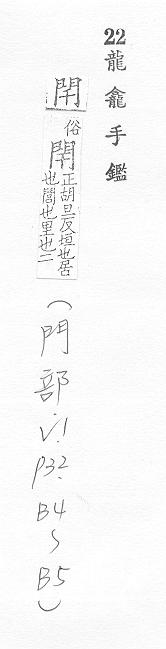 22龍龕手鑑
閈
俗閈正胡旦反垣也居
也閭也里也二
(門部·v.1 p32. B4~B5)